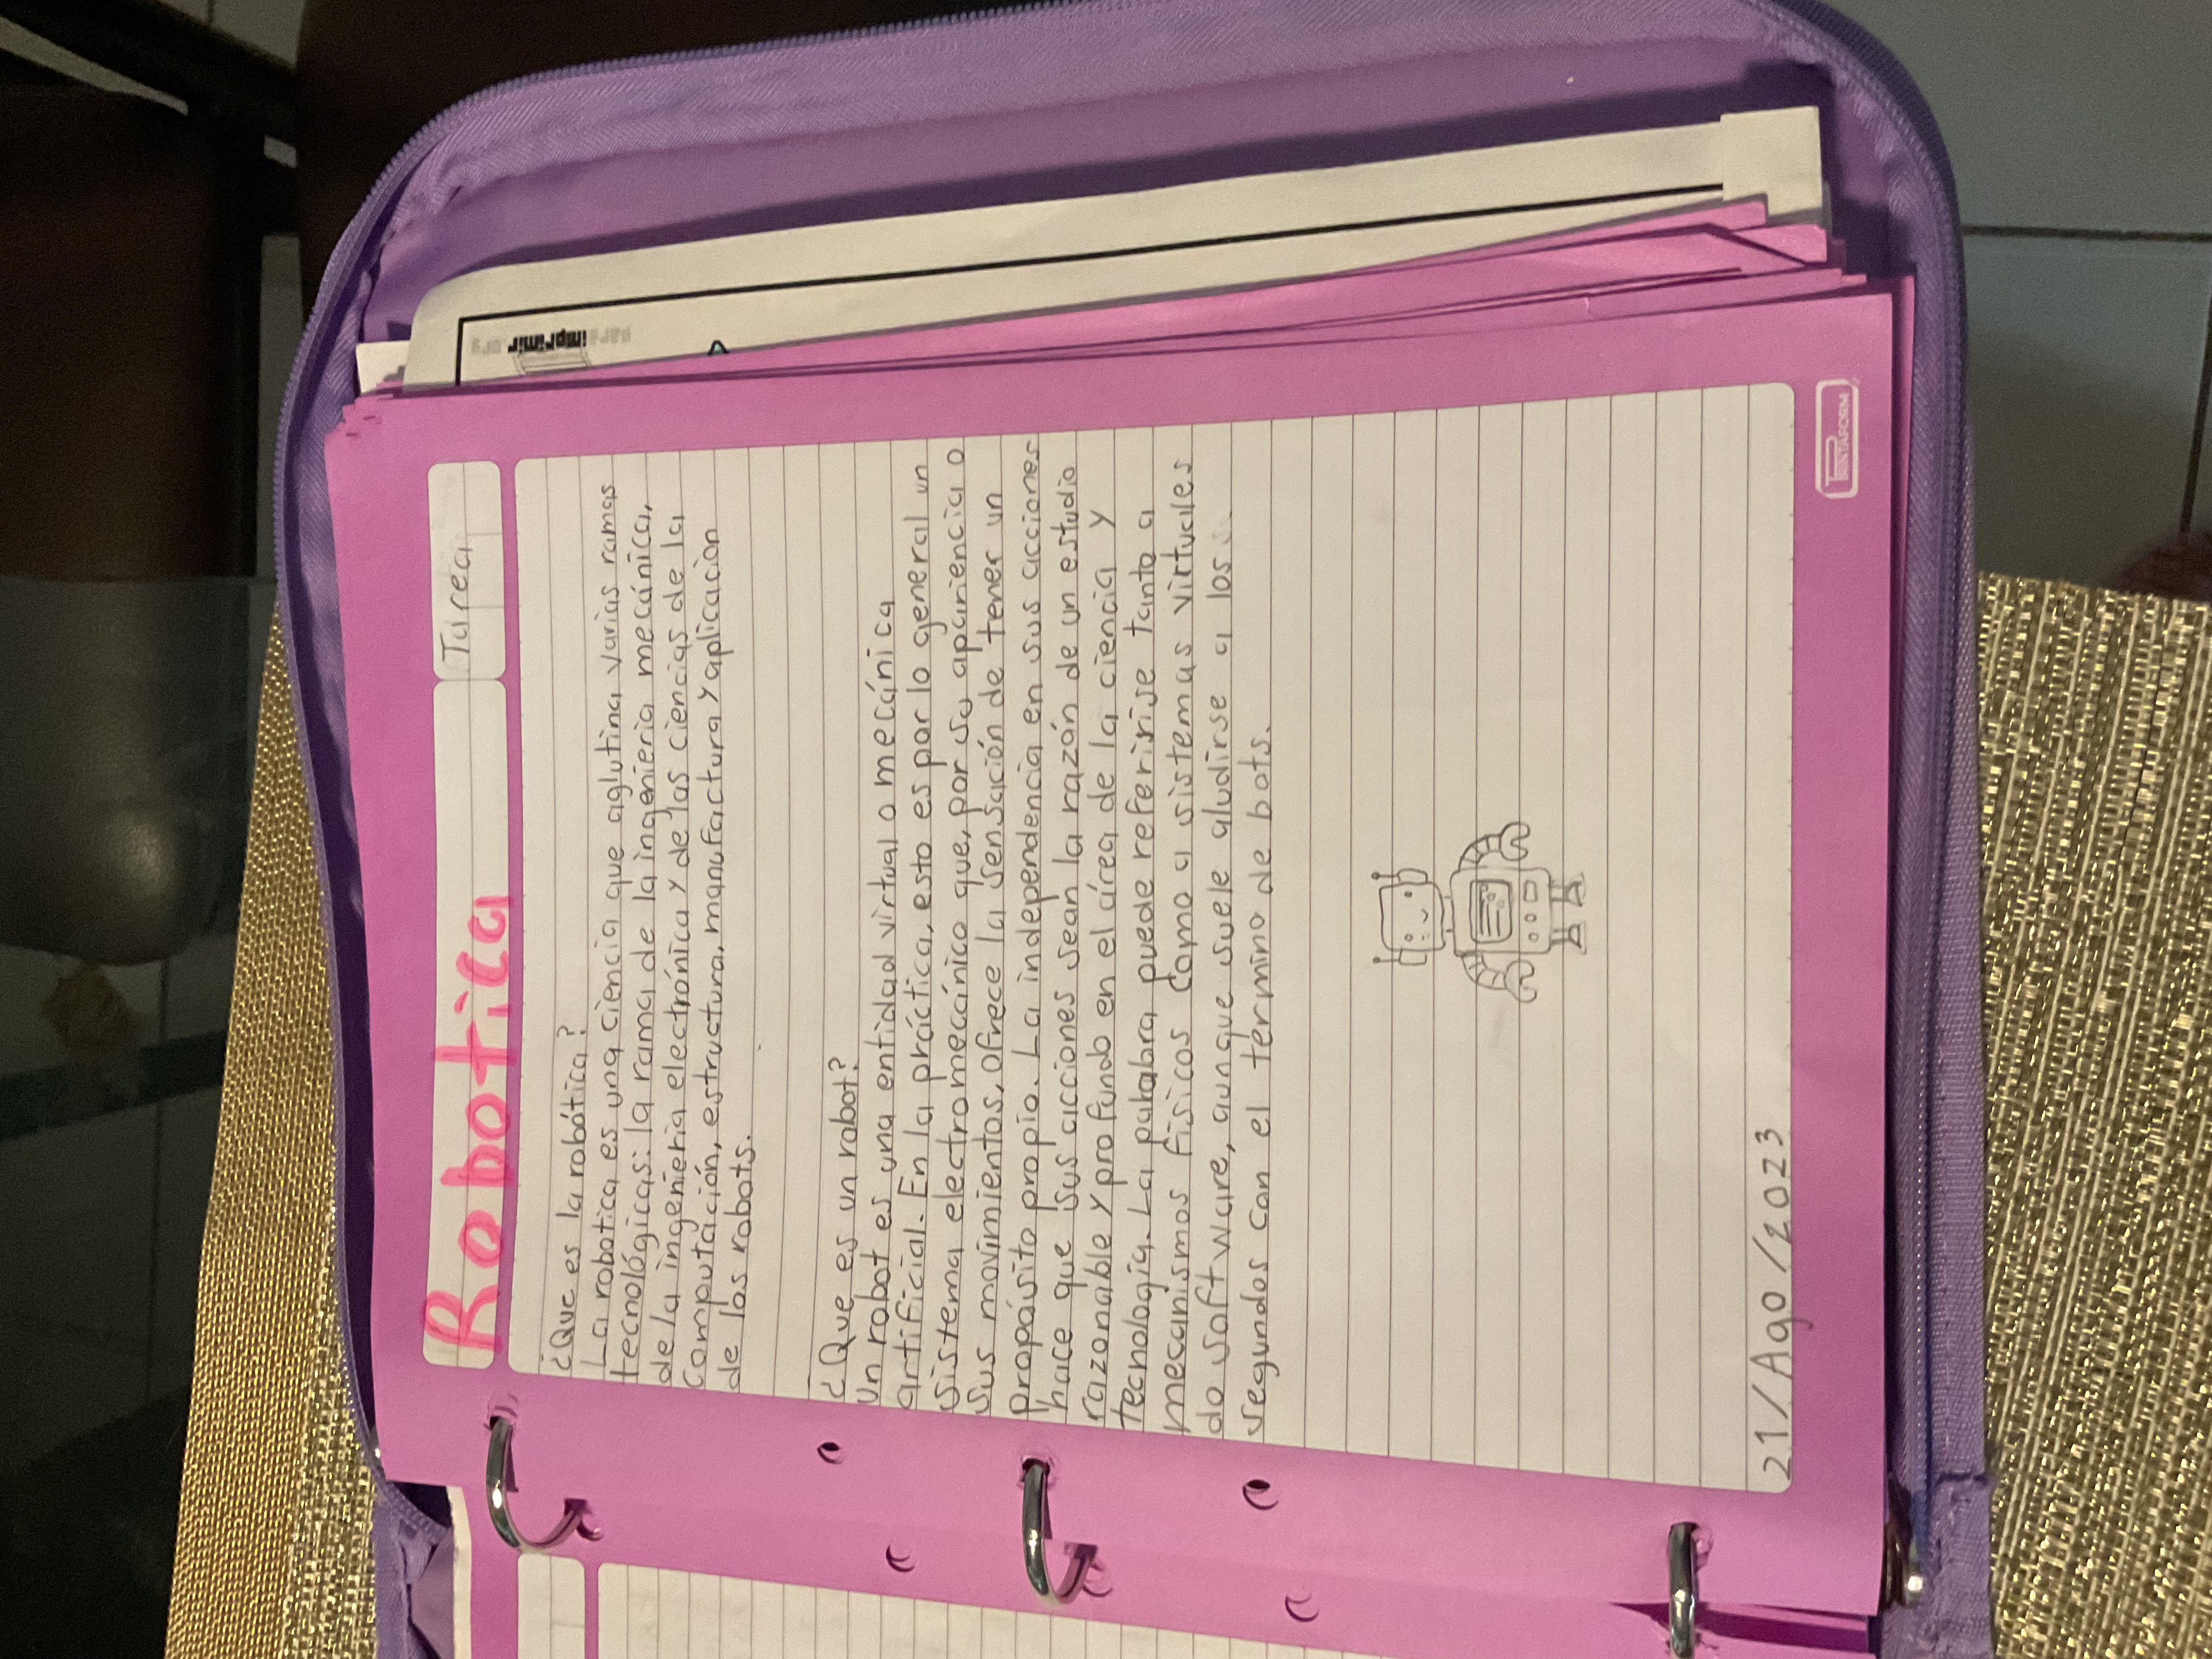 Robotica
Tarea
¿Que es la robótica?
La robotica es una ciencia que aglutina varias ramas
tecnológicas: la rama de la ingenieria mecánica,
de la ingenieria electrónica y de las ciencias de la
computación, estructura, manufactura y aplicación
de los robots.
¿Que es un robot?
Un robot es una entidad virtual o mecánica
artificial. En la práctica, esto es por lo general un
sistema electromecánico que, por su apariencia o
sus movimientos, ofrece la sensación de tener un
propósito propio. La independencia en sus acciones
hace que sus acciones sean la razón de un estudio
razonable y profundo en el área de la ciencia y
tecnologia. La palabra puede referirise tanto a
mecanismos fisicos como a sistemas virtuales
do software, aunque suele aludirse a los
segundos con el término de bots.
21/Ago/2023
PRINTAFORM
para
imprimir
.org